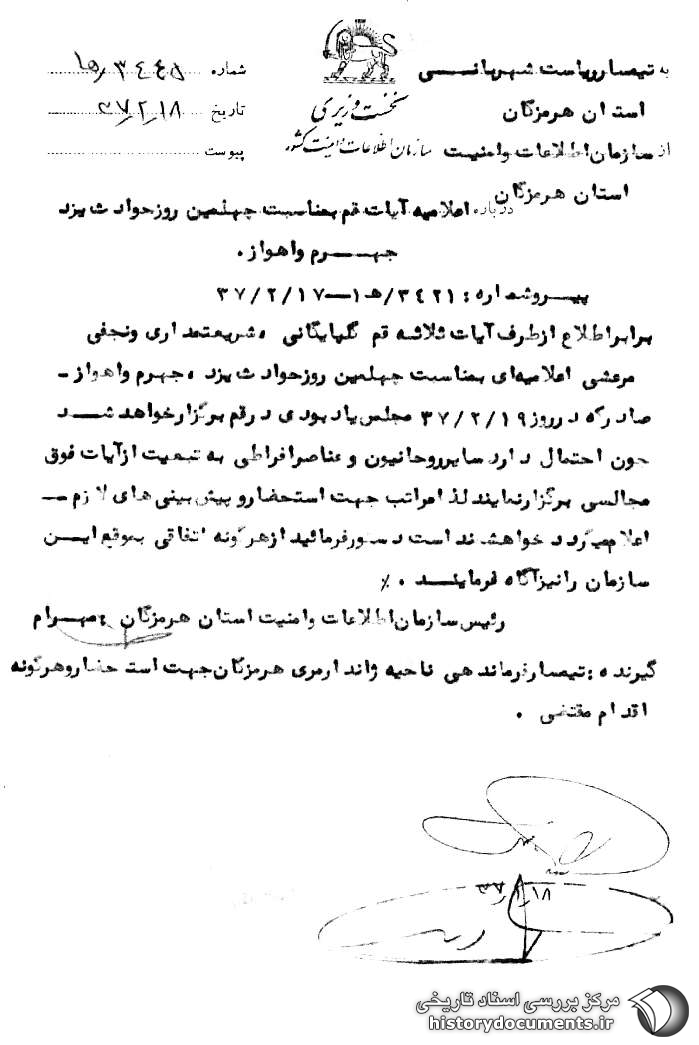 به تیمسار ریاست شهربانی
استان هرمزگان
از سازمان اطلاعات و امنیت
استان هرمزگان
نخست وزیری
سازمان اطلاعات و امنیت کشور
شماره ۳۴۴۵
تاریخ ۳۷/۲/۱۸
پیوست
درباره اعلامیه آیات قم بمناسبت چهلمین روز حوادث یزد
جهرم و اهواز .
پیرو شماره : ۳۴۲۱/ه‍ ۱ــ ۳۷/۲/۱۷
برابر اطلاع از طرف آیات ثلاثه قم گلپایگانی ، شریعتمداری و نجفی
مرعشی اعلامیه‌ای بمناسبت چهلمین روز حوادث یزد ، جهرم و اهواز ـ
صادر که در روز ۳۷/۲/۱۹ مجلس یادبودی در قم برگزار خواهد شد
چون احتمال دارد سایر روحانیون و عناصر افراطی به تبعیت از آیات فوق
مجالسی برگزار نمایند لذا مراتب جهت استحضار و پیش بینی های لازم ـ
اعلام میگردد خواهشمند است دستور فرمائید از هرگونه اتفاقی بموقع این
سازمان را نیز آگاه فرمایند . ٪
رئیس سازمان اطلاعات و امنیت استان هرمزگان
گیرنده : تیمسار فرماندهی ناحیه ژاندارمری هرمزگان جهت استحضار و هرگونه
اقدام مقتضی .
مرکز بررسی اسناد تاریخی
historydocuments.ir